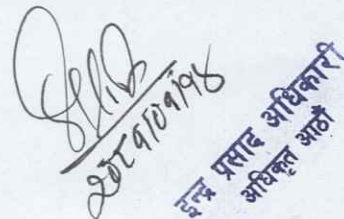 २०८१।०१।१४
इन्द्र प्रसाद अधिकारी
अधिकृत आठौं